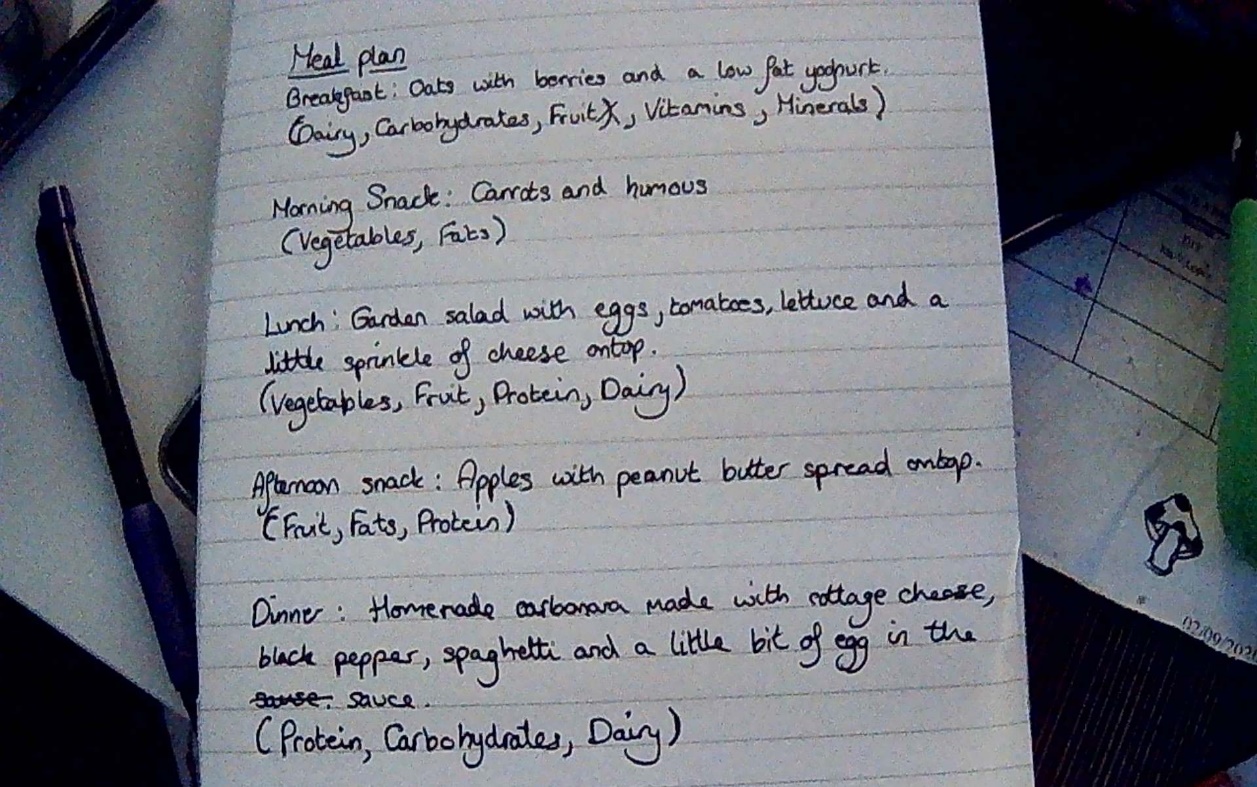 Meal plan
Breakfast: Oats with berries and a low fat yoghurt.
(Dairy, Carbohydrates, Fruit, Vitamins, Minerals)
Morning Snack: Carrots and humous
(Vegetables, Fats)
Lunch: Garden salad with eggs, tomatoes, lettuce and a
little sprinkle of cheese ontop.
(Vegetables, Fruit, Protein, Dairy)
Afternoon snack: Apples with peanut butter spread ontop.
(Fruit, Fats, Protein)
Dinner: Homemade carbonara made with cottage cheese,
black pepper, spaghetti and a little bit of egg in the
sause. sauce.
(Protein, Carbohydrates, Dairy)
02/09/202